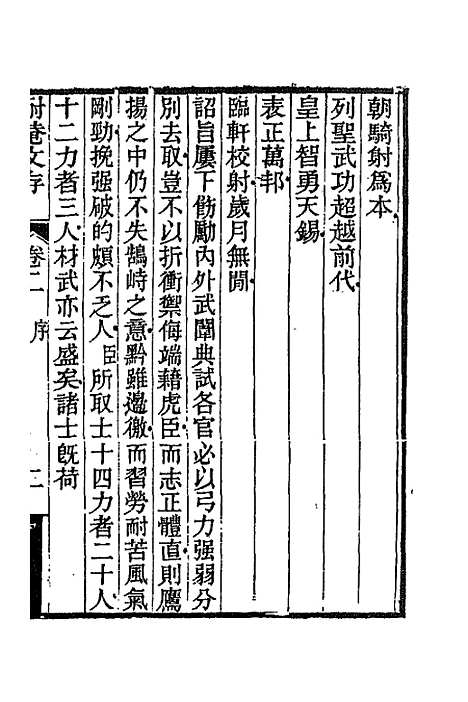 朝騎射爲本
列聖武功超越前代
皇上智勇天錫
表正萬邦
臨軒校射歲月無閒
詔旨屢下飭勵內外武闈典試各官必以弓力强弱分
別去取豈不以折衝禦侮端藉虎臣而志正體直則鷹
揚之中仍不失鵠峙之意黔雖邊徼而習勞耐苦風氣
剛勁挽强破的頗不乏人臣所取士十四力者二十人
十二力者三人材武亦云盛矣諸士旣荷
耐菴文存 卷二 序 二